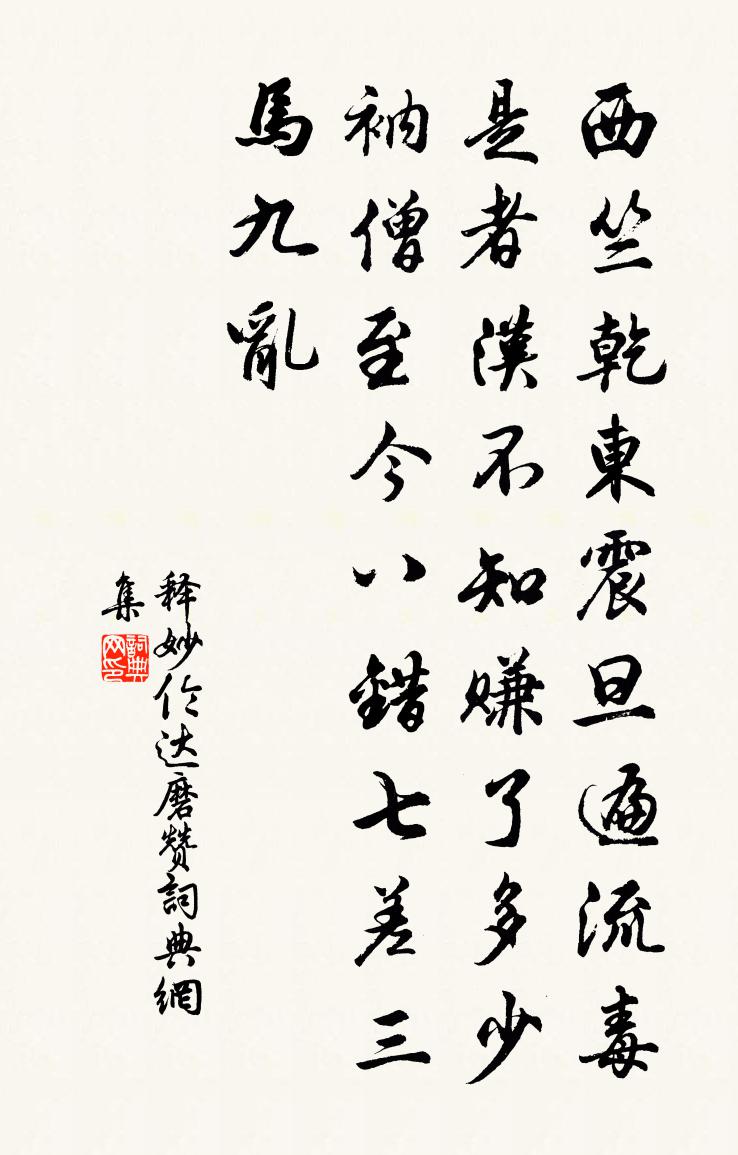 西竺乾東震旦遍流毒
是者漢不知賺了多少
衲僧至今八錯七差三
馬九亂
释妙伦达磨赞詞典網
集
詞典网印